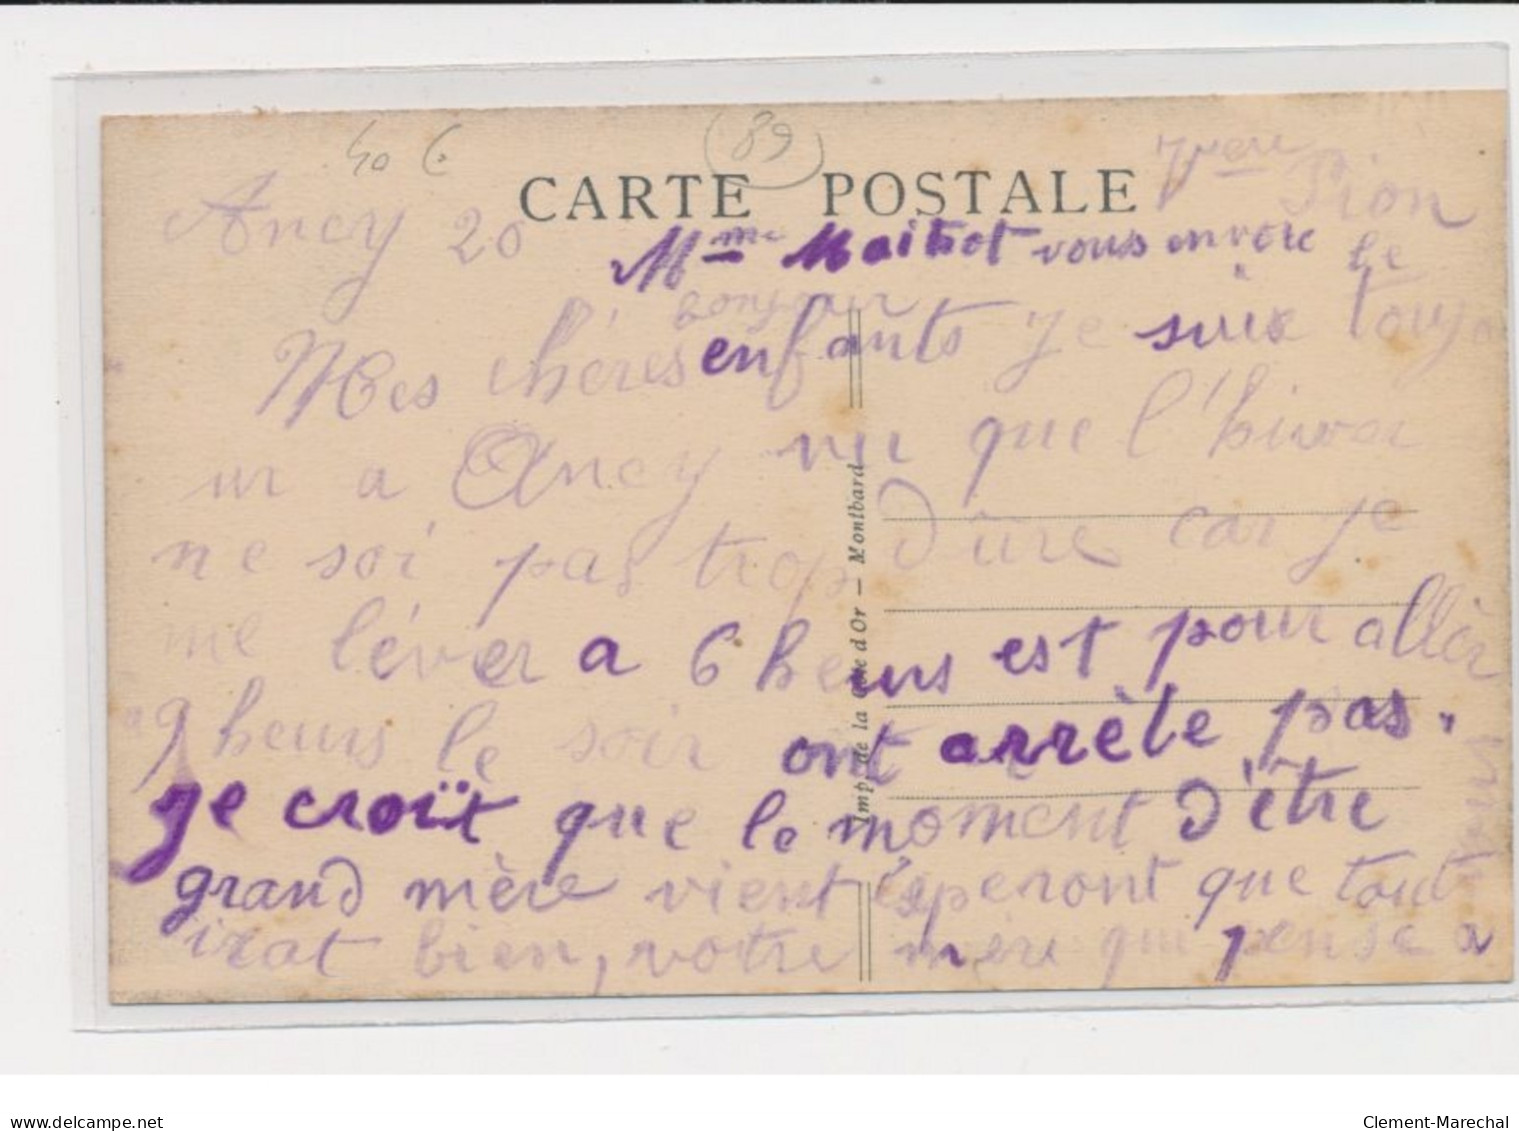 40 €
(89)
CARTE POSTALE
Ancy 20
Pion
Mme Maitrot vous envoie le
bonjour
Mes chères enfants Je suix toujo
ur a Ancy vu que l'hiver
ne soi pas trop dûre car je
me léver a 6 heurs est pour allèr
a 9 heurs le soir ont arrète pas.
je croïx que le moment d'être
grand mère vient ésperont que tout
irat bien, votre mère qui pense a
vous
Imp. de la Côte d'Or — Montbard
delcampe.net
Clement-Marechal